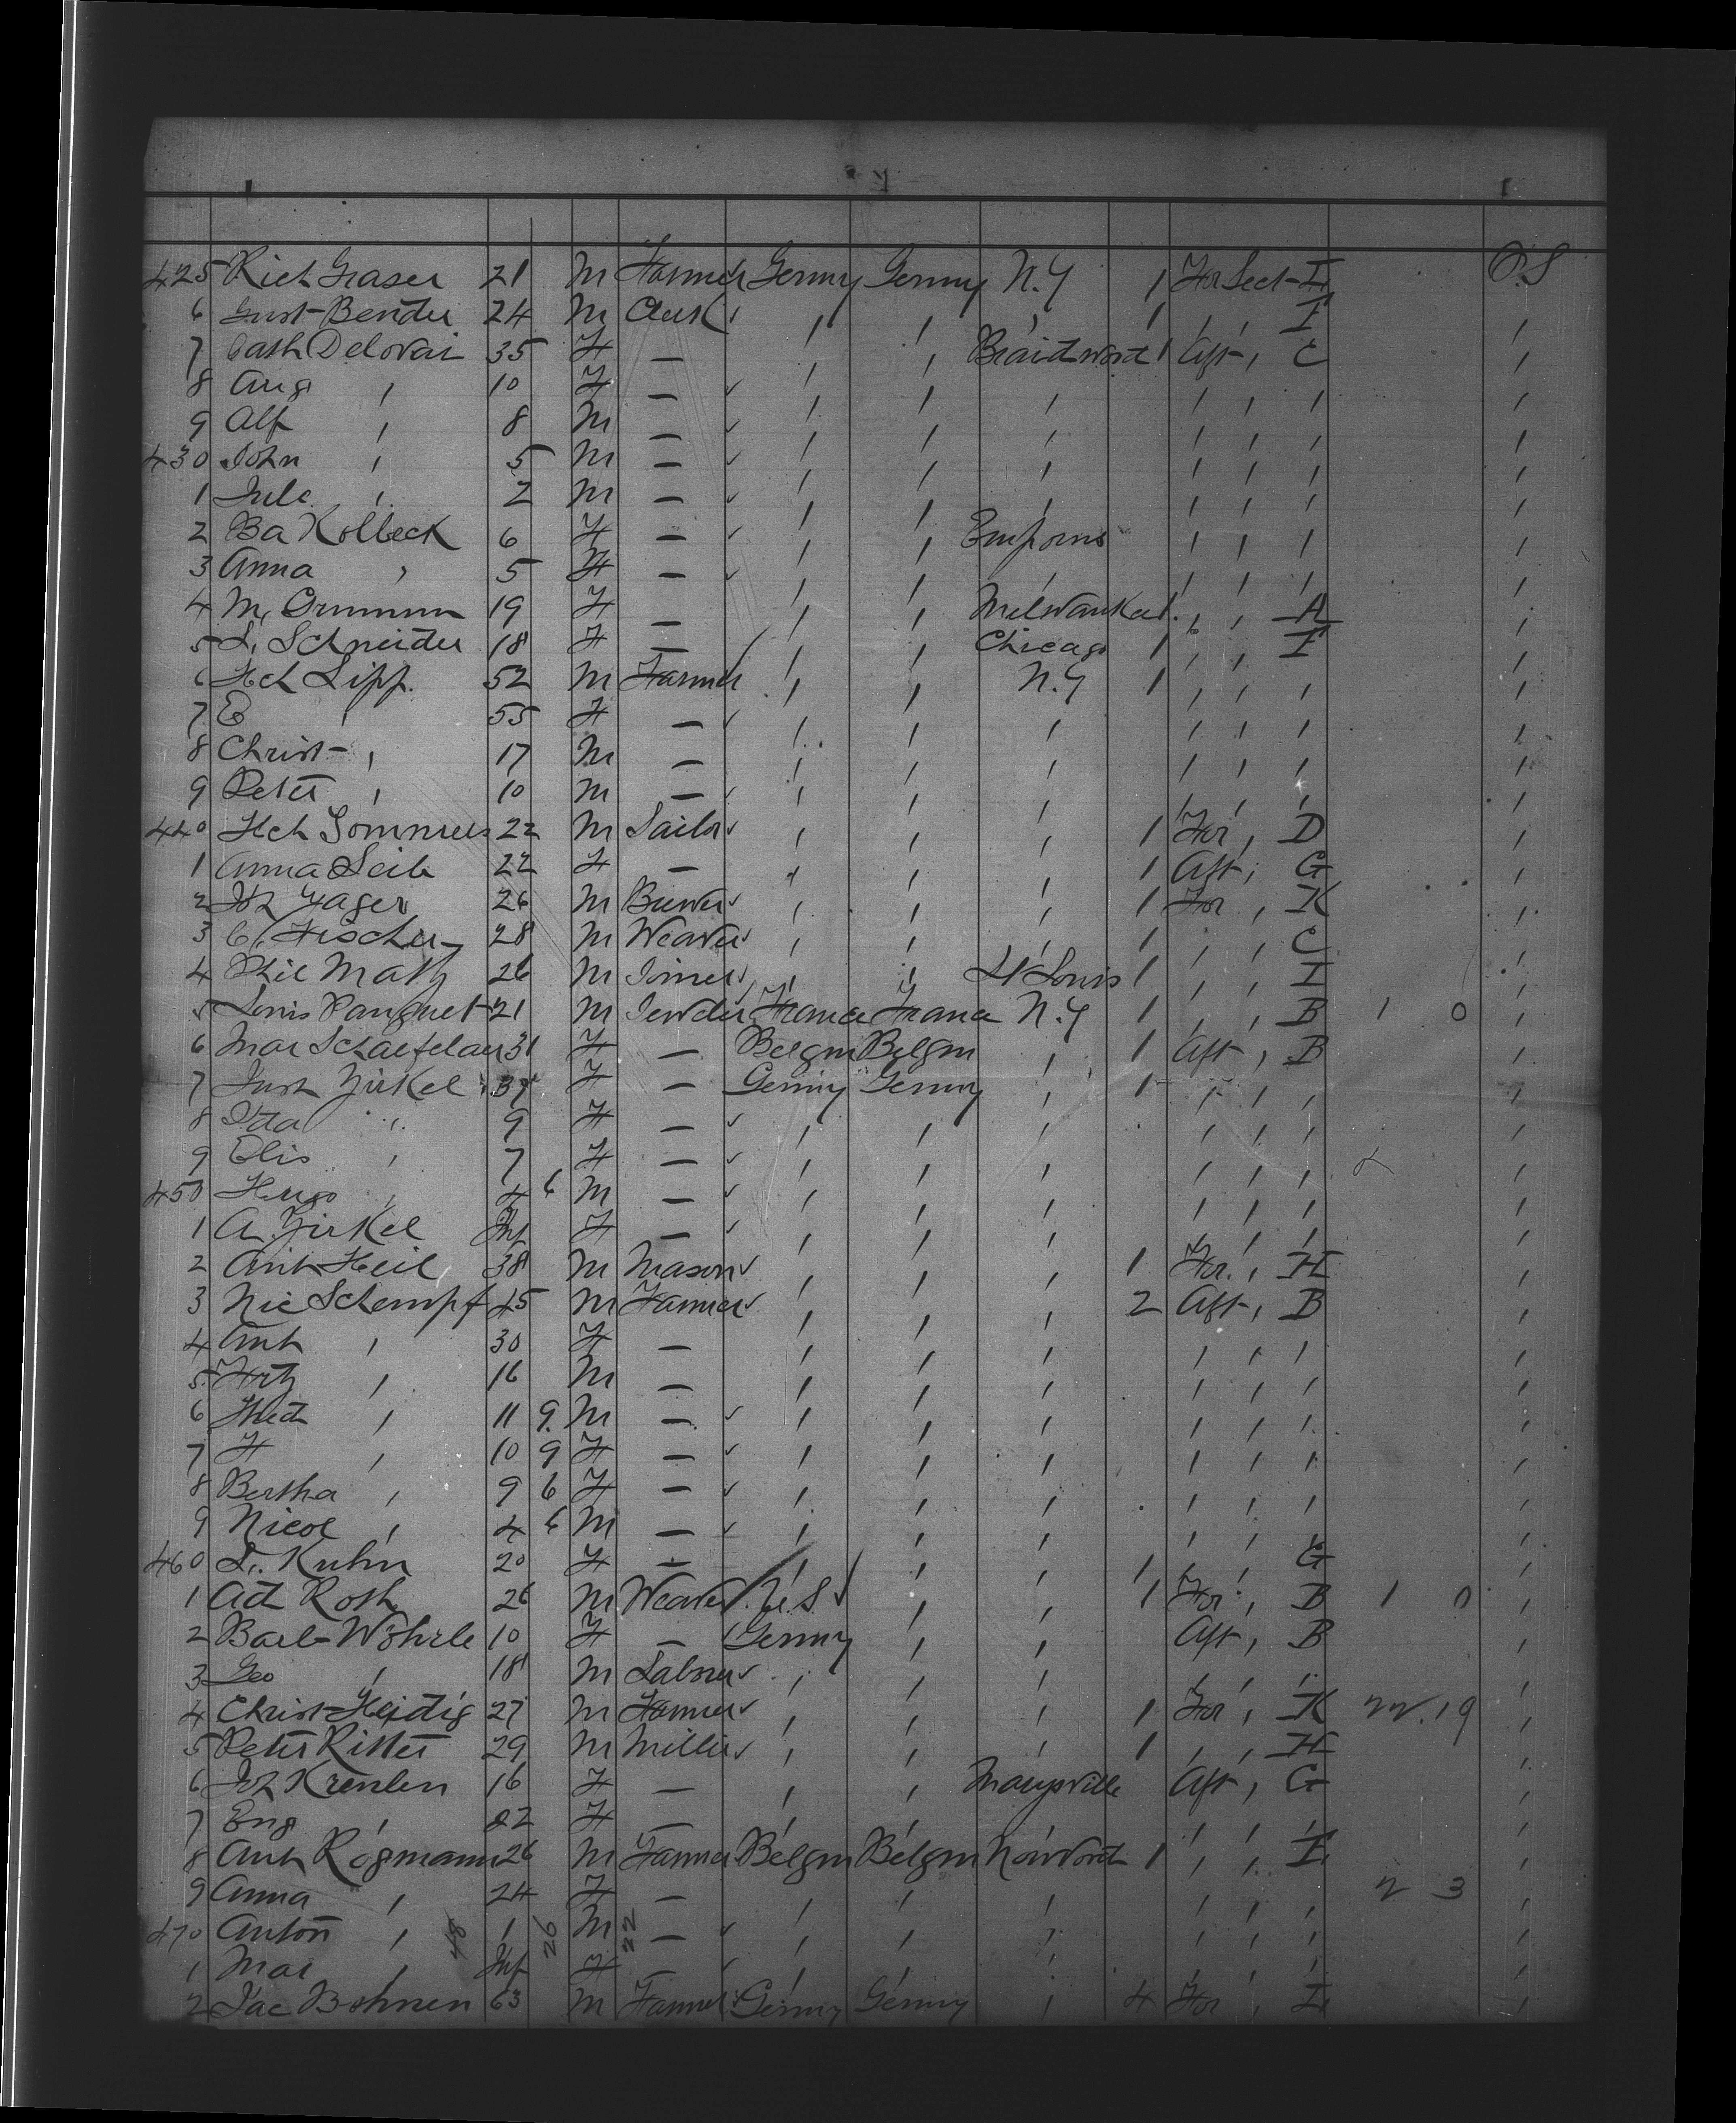 425 Rich Graser 21 M Farmer Germy Germy N.Y 1 For Sect- I O.S
6 Gust- Bender 24 M Clerk ' ' ' ' 1 ' ' I '
7 Cath Delovai 35 F — ' ' Braidwood 1 Aft ' C '
8 Aug ' 10 F — ' ' ' ' ' ' '
9 Alf ' 8 M — ' ' ' ' ' ' '
430 John ' 5 M — ' ' ' ' ' ' '
1 Jule ' 2 M — ' ' ' ' ' ' '
2 Ba Kolbeck 6 F — ' ' ' ' ' '
3 Anna ' 5 F — ' ' ' ' ' ' '
4 M, 19 F — ' ' 1 ' ' A '
5 L, Schneider 18 F — ' ' Chicago 1 ' ' I '
6 Hch Lipp. 52 M Farmer ' ' N.Y 1 ' ' ' '
7 E ' 55 F — ' ' ' ' ' ' '
8 Christ- ' 17 M — ' ' ' ' ' ' '
9 Peter ' 10 M — ' ' ' ' ' ' '
440 Hch Sommers 22 M Sailor ' ' ' 1 For ' D '
1 Anna Leib 22 F — ' ' ' 1 Aft ' G '
2 Joh Yager 26 M Brewer ' ' ' 1 For ' K '
3 C, Fischer 28 M Weaver ' ' ' 1 ' ' C '
4 Phil Math 26 M Joiner ' ' St Louis 1 ' ' I '
5 Louis Panquet 21 M Jeweler France France N.Y 1 ' ' B 1 0 '
6 Mar 31 F — Belgm Belgm ' 1 Aft ' B '
7 Just Zirkel 37 F — Germy Germy ' 1 ' ' ' '
8 Ida ' 9 F — ' ' ' ' ' ' '
9 Elis ' 7 F — ' ' ' ' ' ' '
450 Hugo ' 4 6 M — ' ' ' ' ' ' '
1 A. Zirkel Inf F — ' ' ' ' ' ' '
2 Ant Heil 38 M Mason ' ' ' 1 For ' H '
3 Nic Schempf 45 M Farmer ' ' ' 2 Aft ' B '
4 Ant ' 30 F — ' ' ' ' ' ' '
5 Fritz ' 16 M — ' ' ' ' ' ' '
6 ' 11 9 M — ' ' ' ' ' ' '
7 F ' 10 9 F — ' ' ' ' ' ' '
8 Bertha ' 9 6 F — ' ' ' ' ' ' '
9 Nicol ' 4 6 M — ' ' ' ' ' ' '
460 L. Kuhn 20 F — ' ' ' 1 ' ' G '
1 Ad Roth 26 M Weaver U.S ' ' 1 For ' B 1 0 '
2 Barb- Wöhrle 10 F — Germy ' ' Aft ' B '
3 Geo ' 18 M Laborer ' ' ' ' ' ' '
4 Christ 27 M Farmer ' ' ' 1 For ' K 19 '
5 Peter Ritter 29 M Miller ' ' ' 1 ' ' H '
6 16 F — ' ' Marysville Aft ' G '
7 Eug ' 22 F — ' ' ' ' ' ' '
8 Ant Rogmann 26 M Farmer Belgm Belgm 1 ' ' I '
9 Anna ' 24 F — ' ' ' ' ' ' 3 '
470 Anton ' 48 1 26 M 22 — ' ' ' ' ' ' '
1 Mar ' Inf F — ' ' ' ' ' ' '
2 Jac Bohnen 63 M Farmer Germy Germy ' 4 For ' I '